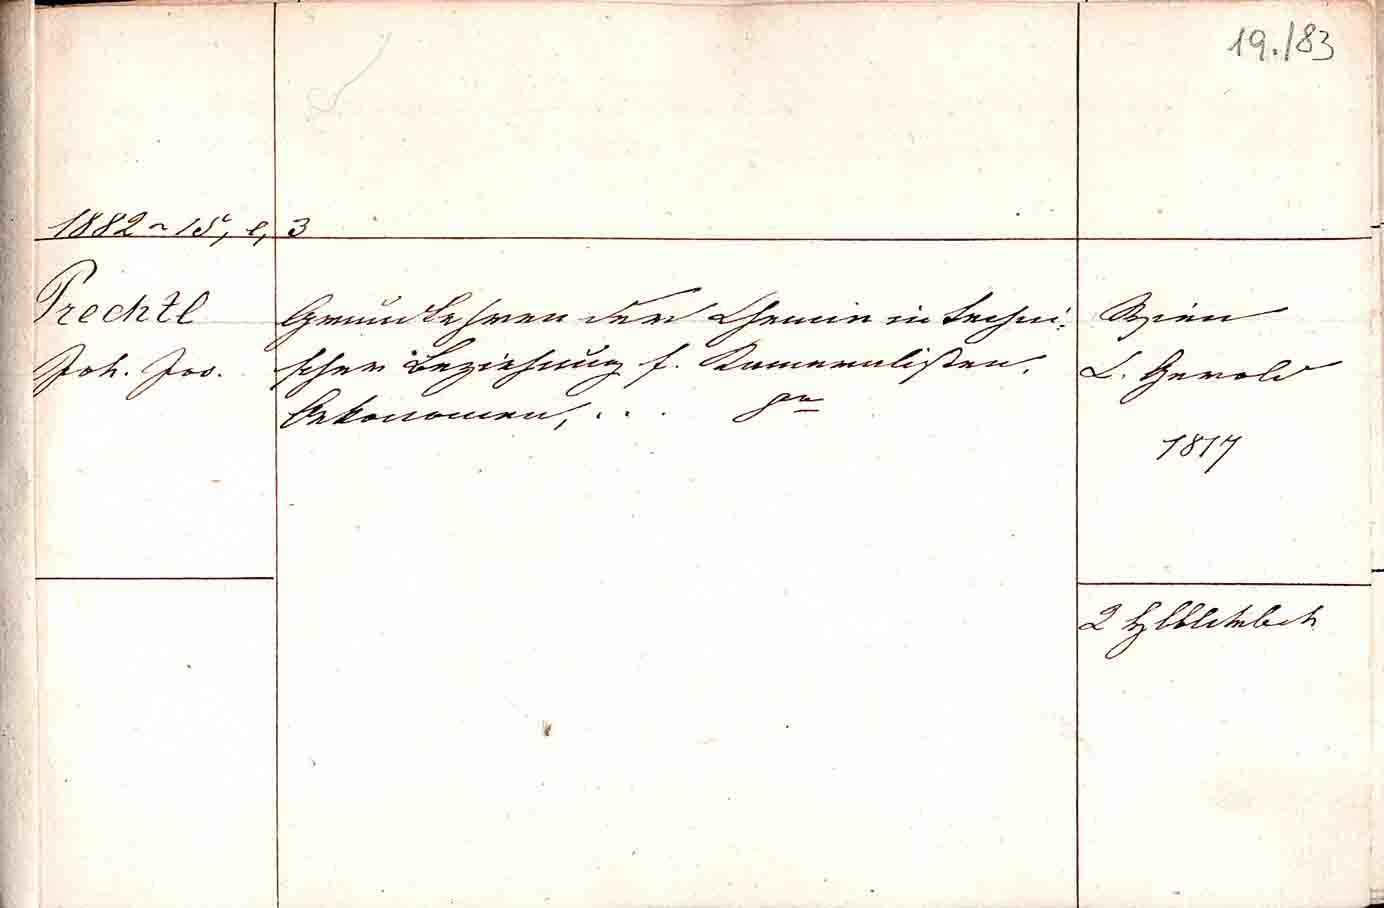 19./83
1882 ~ 15, e, 3
Prechtl
Joh. Jos.
Grundlehren der Chemie in techni-
scher Beziehung f. Kameralisten,
Oekonomen, ... 8°
Wien
C. Gerold
1817
2 Hlbldrbde